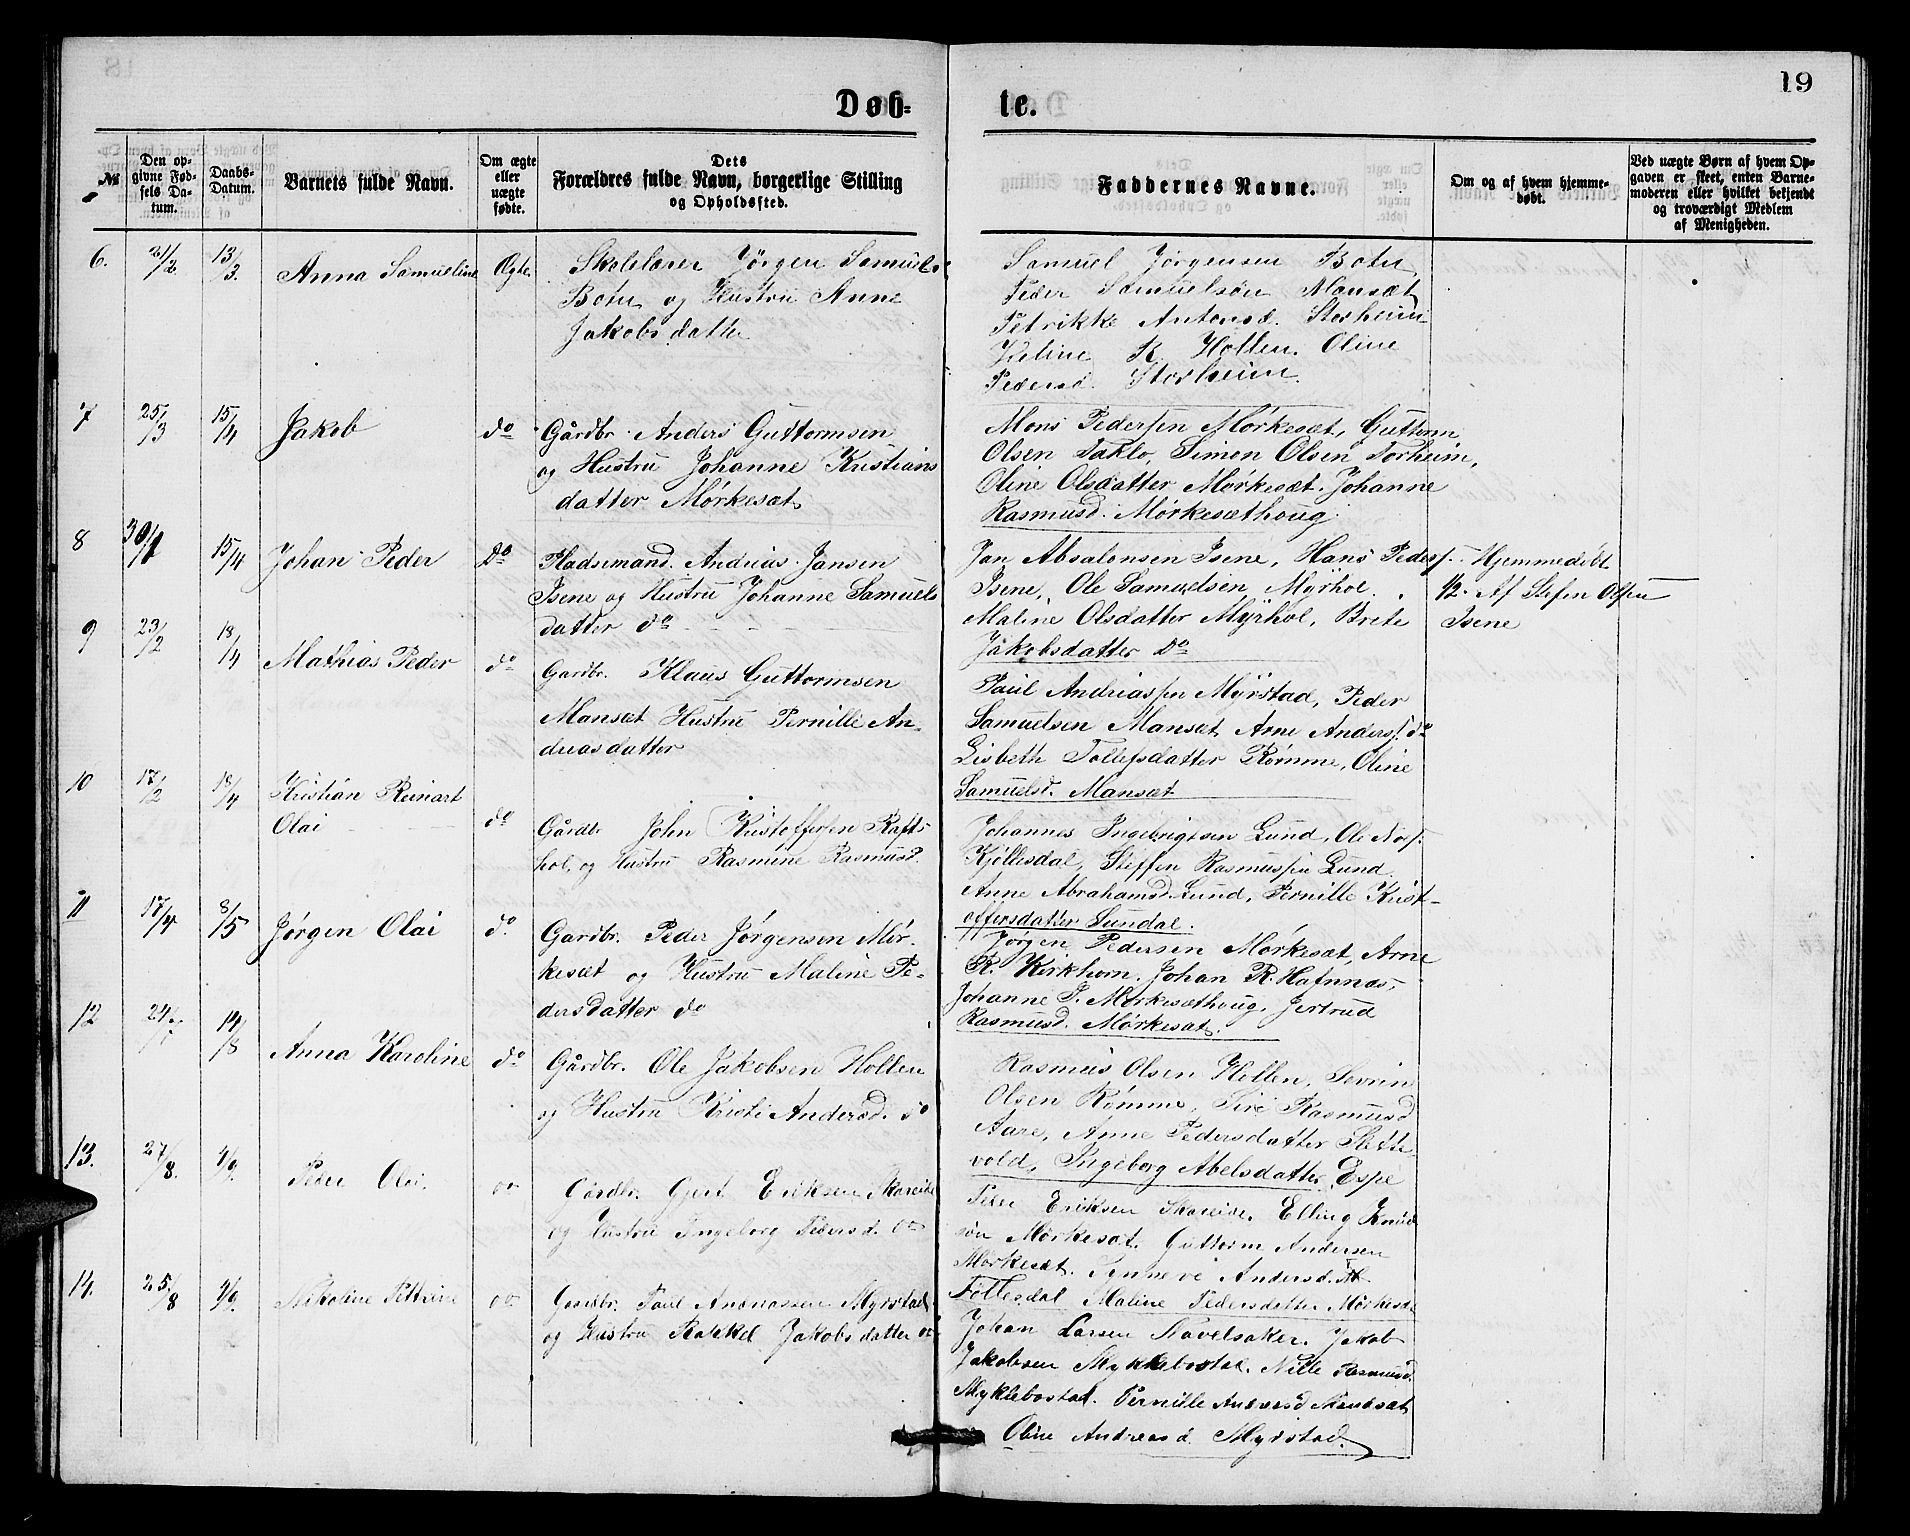 19
Døb-
te.
№
Den op-
givne Fød-
sels Da-
tum.
Daabs-
Datum.
Barnets fulde Navn.
Om ægte
eller
uægte
fødte.
Dets
Forældres fulde Navn, borgerlige Stilling
og Opholdssted.
Faddernes Navne.
Om og af hvem hjemme-
døbt.
Ved uægte Børn af hvem Op-
gaven er skeet, enten Barne-
moderen eller hvilket bekjendt
og troværdigt Medlem
af Menigheden.
6. 21/2 13/3. Anna Samueline Ægte.
Skolelærer Jørgen Samuels
Botn og Hustru Anne
Jakobsdatter
Samuel Jørgensen Botn,
Peder Samuelsøn Mansæt
Petrikke Antonsd. Storheim
R. Hollen. Oline
Pedersd. Storheim.
7 25/3 15/4 Jakob do
Gårdbr. Anders Guttormsen
og Hustru Johanne Kristians
datter Mørkesæt
Mons Pedersen Mørkesæt, Guttorm
Olsen Taklo, Simon Olsen Torheim,
Oline Olsdatter Mørkesæt. Johanne
Rasmusd. Mørkesæthoug.
8 30/1 15/4 Johan Peder Do
Pladsemand. Andreas Jansen
Isene og Hustru Johanne Samuels
datter do
Jan Absalonsen Isene, Hans Peders.
Isene, Ole Samuelsen Myrhol.
Maline Olsdatter Myrhol, Brete
Jakobsdatter Do
Hjemmedöbt
1/2. Af Stefen Olsen
Isene
9 23/2 18/4 Mathias Peder do
Gardbr. Klaus Guttormsen
Mansæt Hustru Pernille An-
dreasdatter
Paul Andreassen Myrstad, Peder
Samuelsen Mansæt Arne Anders. do
Lisbeth Tollefsdatter Rømme, Oline
Samuelsd. Mansæt
10 17/2 18/4 Kristian Reinart
Olai do
Gårdbr. John Kristoffersen Rafts
hol, og Hustru Rasmine Rasmusd.
Johannes Ingebrigtsen Lund, Ole
Kjøllesdal, Steffen Rasmussen Lund.
Anne Abrahamsd. Lund, Pernille Krist-
offersdatter Sundal.
11 17/4 8/5 Jørgen Olai do.
Gardbr. Peder Jørgensen Mør-
kesæt og Hustru Maline Pe-
dersdatter do
Jørgen Pedersen Mørkesæt, Arne
R. Kirkhorn. Johan R. Hafnnæs,
Johanne P. Mørkesæthoug, Jertrud
Rasmusd. Mørkesæt.
12 14/8 Anna Karoline do
Gårdbr. Ole Jakobsen Hollen
og Hustru Kristi Andersd. do
Rasmus Olsen Hollen, Sevrin
Olsen Rømme, Siri Rasmusd
Aare, Anne Pedersdatter Slette-
vold, Ingeborg Abelsdatter Espe
13. 27/8. 4/9. Peder Olai. do
Gårdbr. Gjert Eriksen Skoreide
og Hustru Ingeborg Pedersd. do
Peder Eriksen Skoreide, Elling Knud
søn Mørkesæt. Guttorm Andersen
Mørkesæt. Synneve Andersd.
Føllesdal Maline Pedersdatter Mørkesæ
14. 25/8 4/9. Nikoline Petrine do
Gaardbr. Paul Andreassen Myrstad
og Hustru Rakkel Jakobsdatter do
Johan Larsen Navelsaker. Jakob
Jakobsen Myklebostad. Nille Rasmusd.
Myklebostad. Pernille Andreasd Mandsæt
Oline Andreasd. Myrstad.